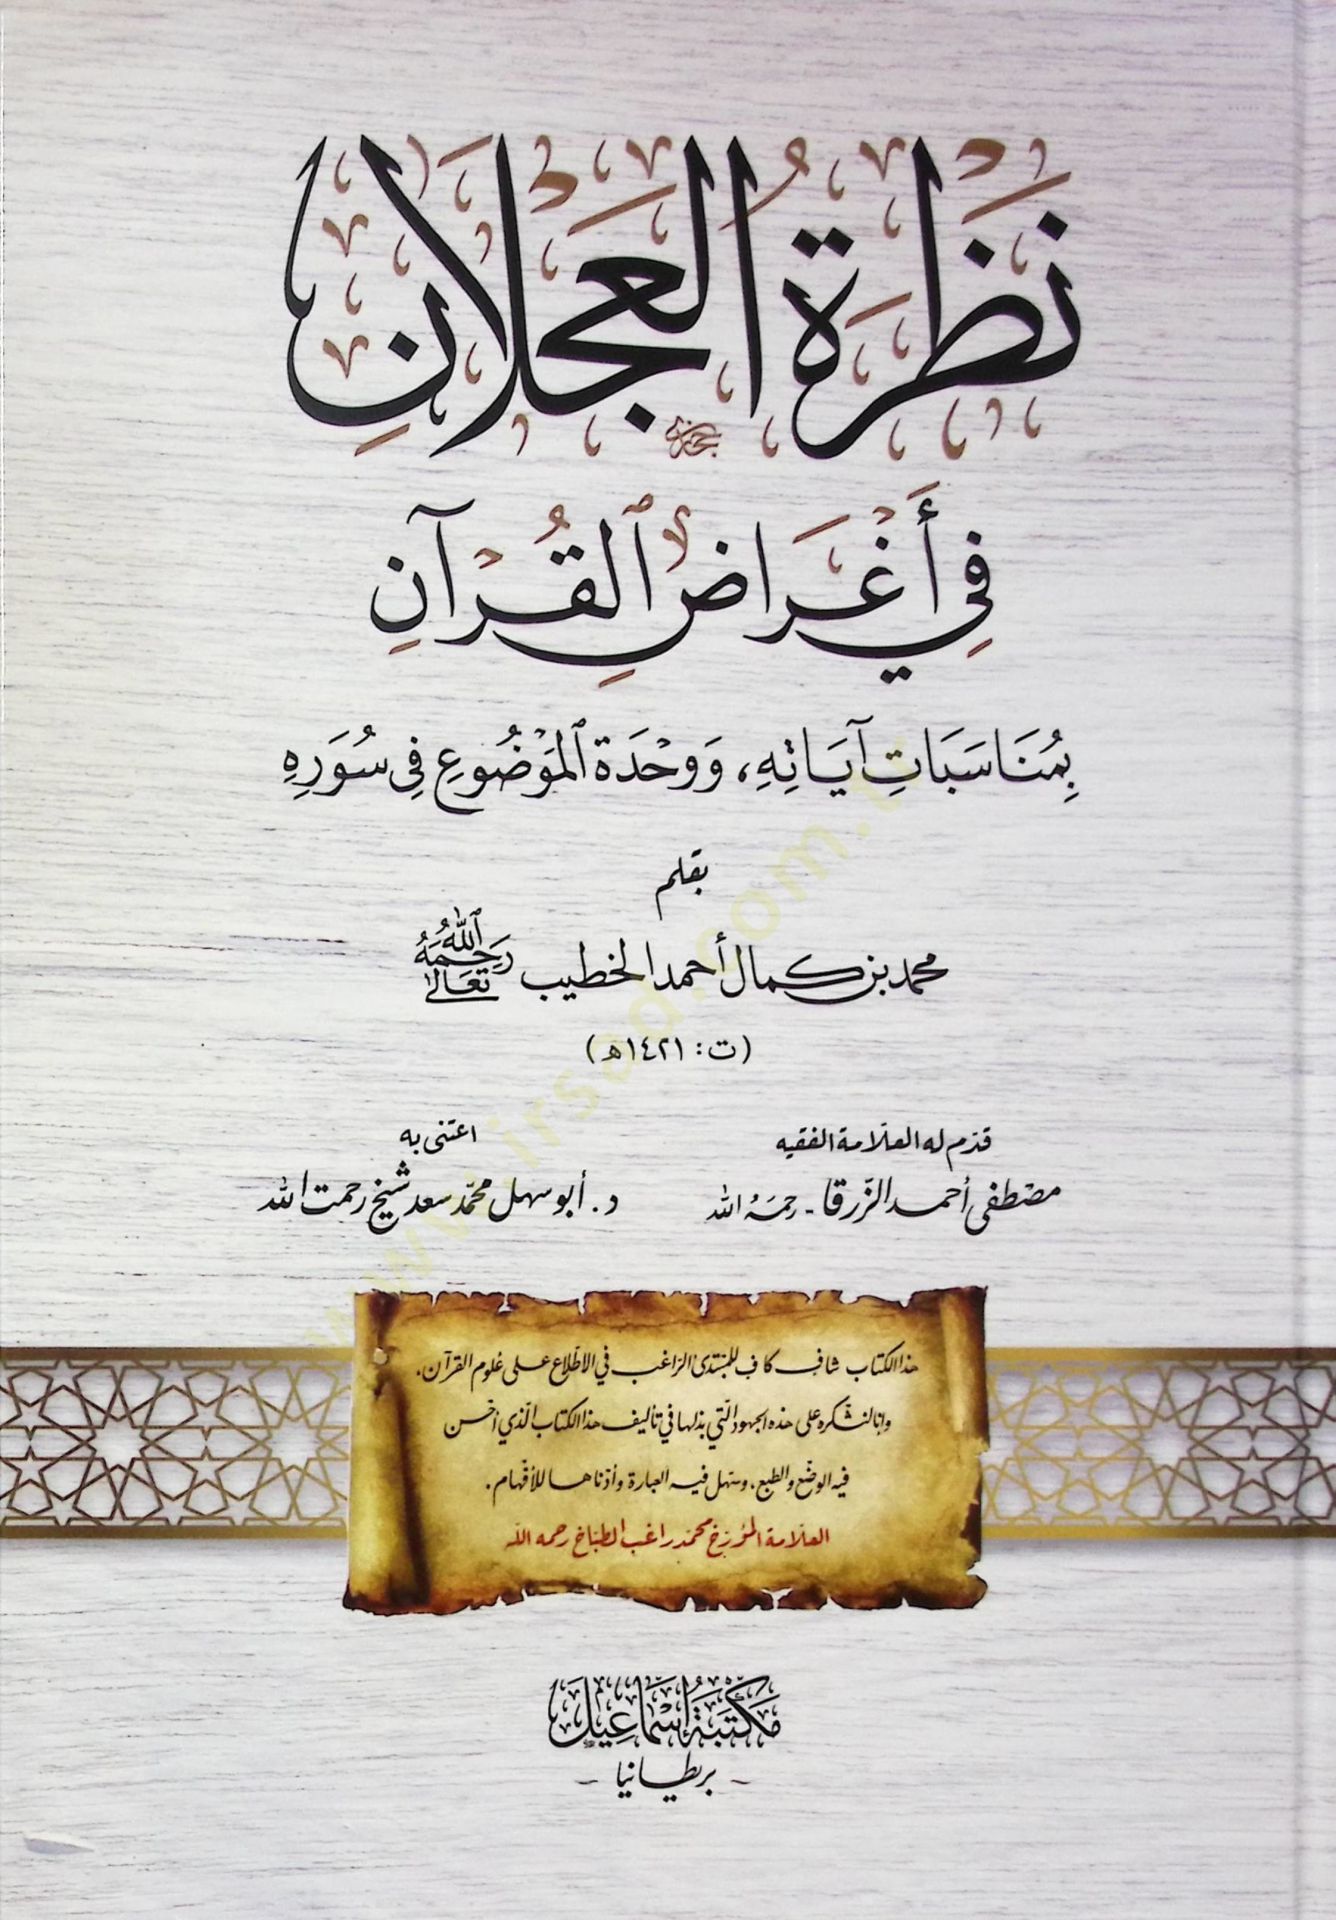 نَظْرَةُ العَجْلَانِ
فِي أَغْرَاضِ ٱلقُرْآنِ
بِمُنَاسَبَاتِ آيَاتِهِ، وَوَحْدَةِ ٱلمَوْضُوعِ فِي سُوَرِهِ
بقلم
محمد بن كمال أحمد الخطيب رَحِمَهُ ٱللَّهُ تَعَالَىٰ
(ت: ١٤٢١ھ)
قدّم له العلّامة الفقيه
مصطفى أحمد الزّرقا - رحمَهُ الله
اعتنى به
د. أبو سهل محمّد سعد شيخ رحمت الله
هذا الكتاب شافٍ كافٍ للمبتدئ الراغب في الاطّلاع على علوم القرآن،
وإنا لنشكره على هذه الجهود التي بذلها في تأليف هذا الكتاب الّذي أحسن
فيه الوضع والطبع، وسهل فيه العبارة وأدناها للأفهام.
العلّامة المؤرّخ محمّد راغب الطبّاخ رحمه الله
مَكْتَبَةُ إِسْمَاعِيل
- بريطانيا -
www.irsad.com.tr